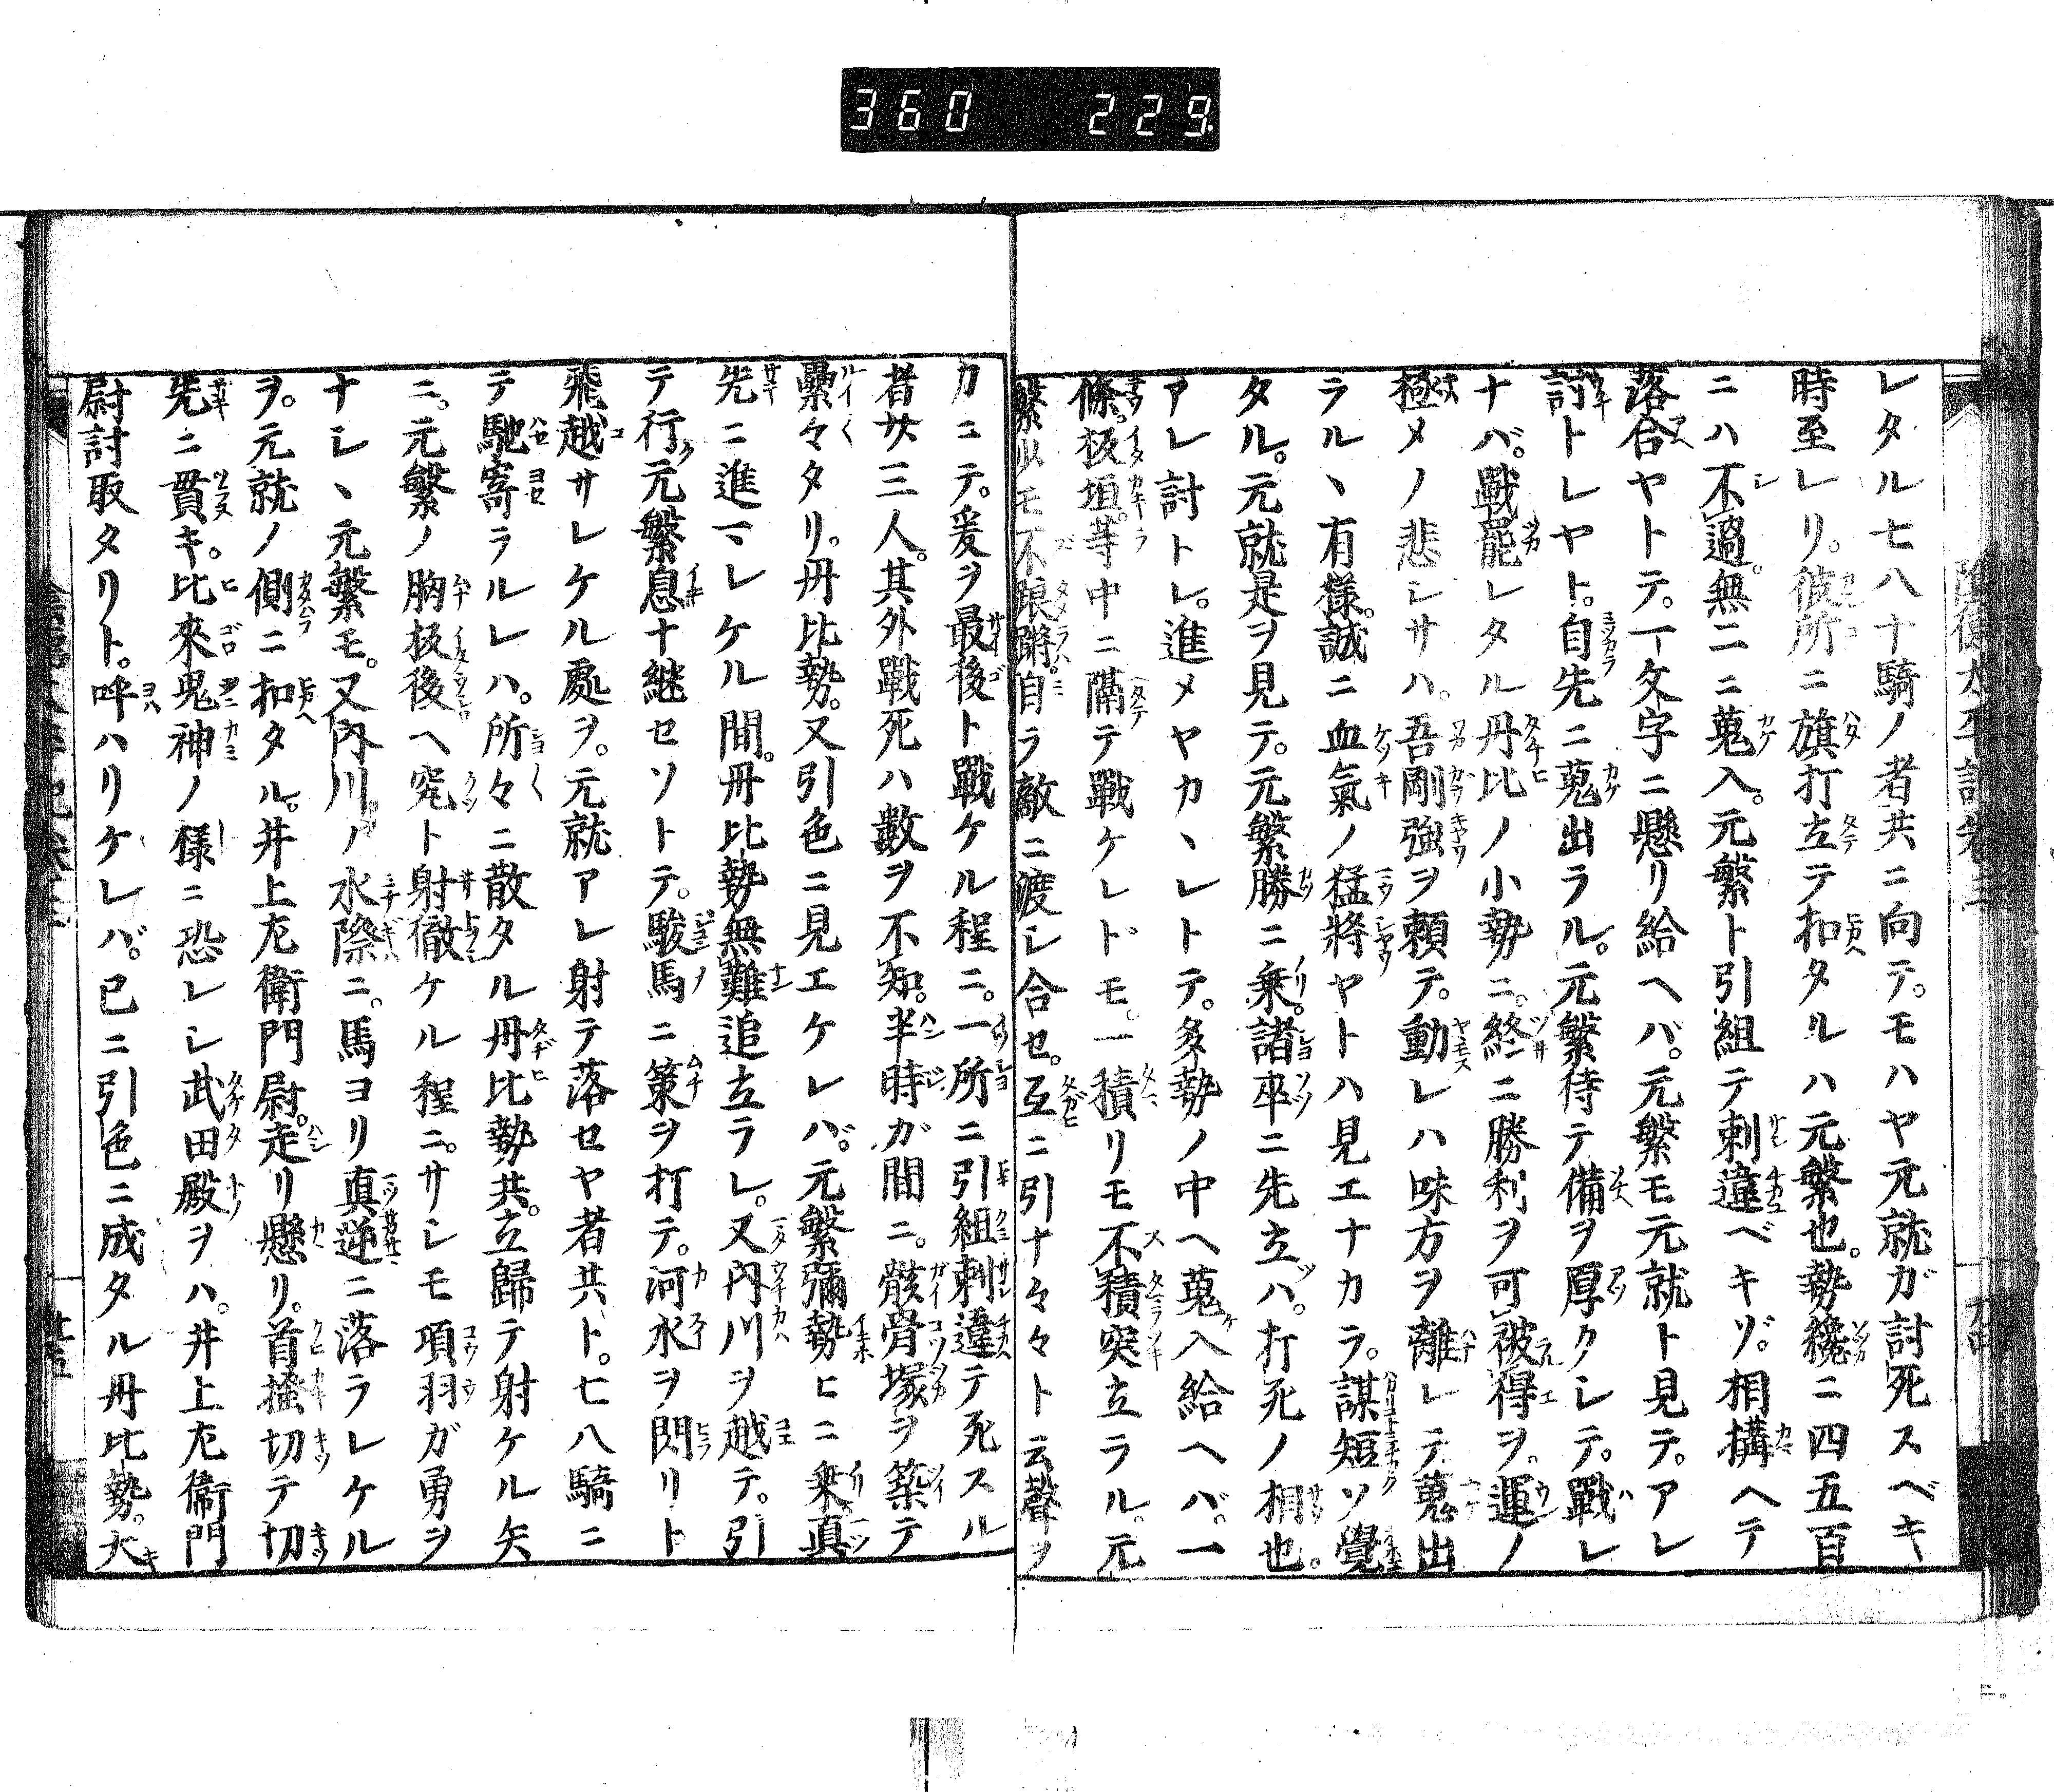 360 229
レタル七八十騎ノ者共ニ向テ。モハヤ元就ガ討死スベキ
時至レリ。彼所ニ旗打立テ扣タルハ元繁也。勢纔ニ四五百
ニハ不過。無二ニ蒐入。元繁ト引組テ刺違ベキゾ。相構ヘテ
落合ヤトテ。一文字ニ懸リ給ヘバ。元繁モ元就ト見テ。アレ
討トレヤト。自先ニ蒐出ラル。元繁待テ備ヲ厚クシテ。戰レ
ナバ。戰罷レタル丹比ノ小勢ニ。終ニ勝利ヲ可被得ヲ。運ノ
極メノ悲シサハ。吾剛強ヲ頼テ。動レハ味方ヲ離レテ蒐出
ラルヽ有様。誠ニ血氣ノ猛將ヤトハ見エナカラ。謀短ソ覺
タル。元就是ヲ見テ。元繁勝ニ乗。諸卒ニ先立ハ。打死ノ相也。
アレ討トレ。進メヤカヽレトテ。多勢ノ中ヘ蒐入給ヘバ。一
條。板垣。等中ニ隔テ戰ケレドモ。一積リモ不積突立ラル。元
繁少モ不踉蹡。自ラ敵ニ渡シ合セ。互ニ引ナ々々ト云聲ヲ
カニテ。爰ヲ最後ト戰ケル程ニ。一所ニ引組刺違テ死スル
者廿三人。其外戰死ハ数ヲ不知。半時ガ間ニ。骸骨塚ヲ築テ
纍々タリ。丹比勢。又引色ニ見エケレバ。元繁彌勢ヒニ乗真
先ニ進マレケル間。丹比勢無難追立ラレ。又内川ヲ越テ。引
テ行。元繁息ナ継セソトテ。駿馬ニ策ヲ打テ。河水ヲ閃リト
飛越サレケル處ヲ。元就アレ射テ落セヤ者共ト。七八騎ニ
テ馳寄ラルレハ。所々ニ散タル丹比勢共。立歸テ射ケル矢
ニ。元繁ノ胸板後ヘ窇ト射徹ケル程ニ。サシモ項羽ガ勇ヲ
ナシヽ元繁モ。又内川ノ水際ニ。馬ヨリ真逆ニ落ラレケル
ヲ。元就ノ側ニ扣タル。井上左衛門尉。走リ懸リ。首搔切テ切
先ニ貫キ。比來鬼神ノ様ニ恐レシ武田殿ヲハ。井上左衛門
尉討取タリト。呼ハリケレバ。已ニ引色ニ成タル丹比勢。大